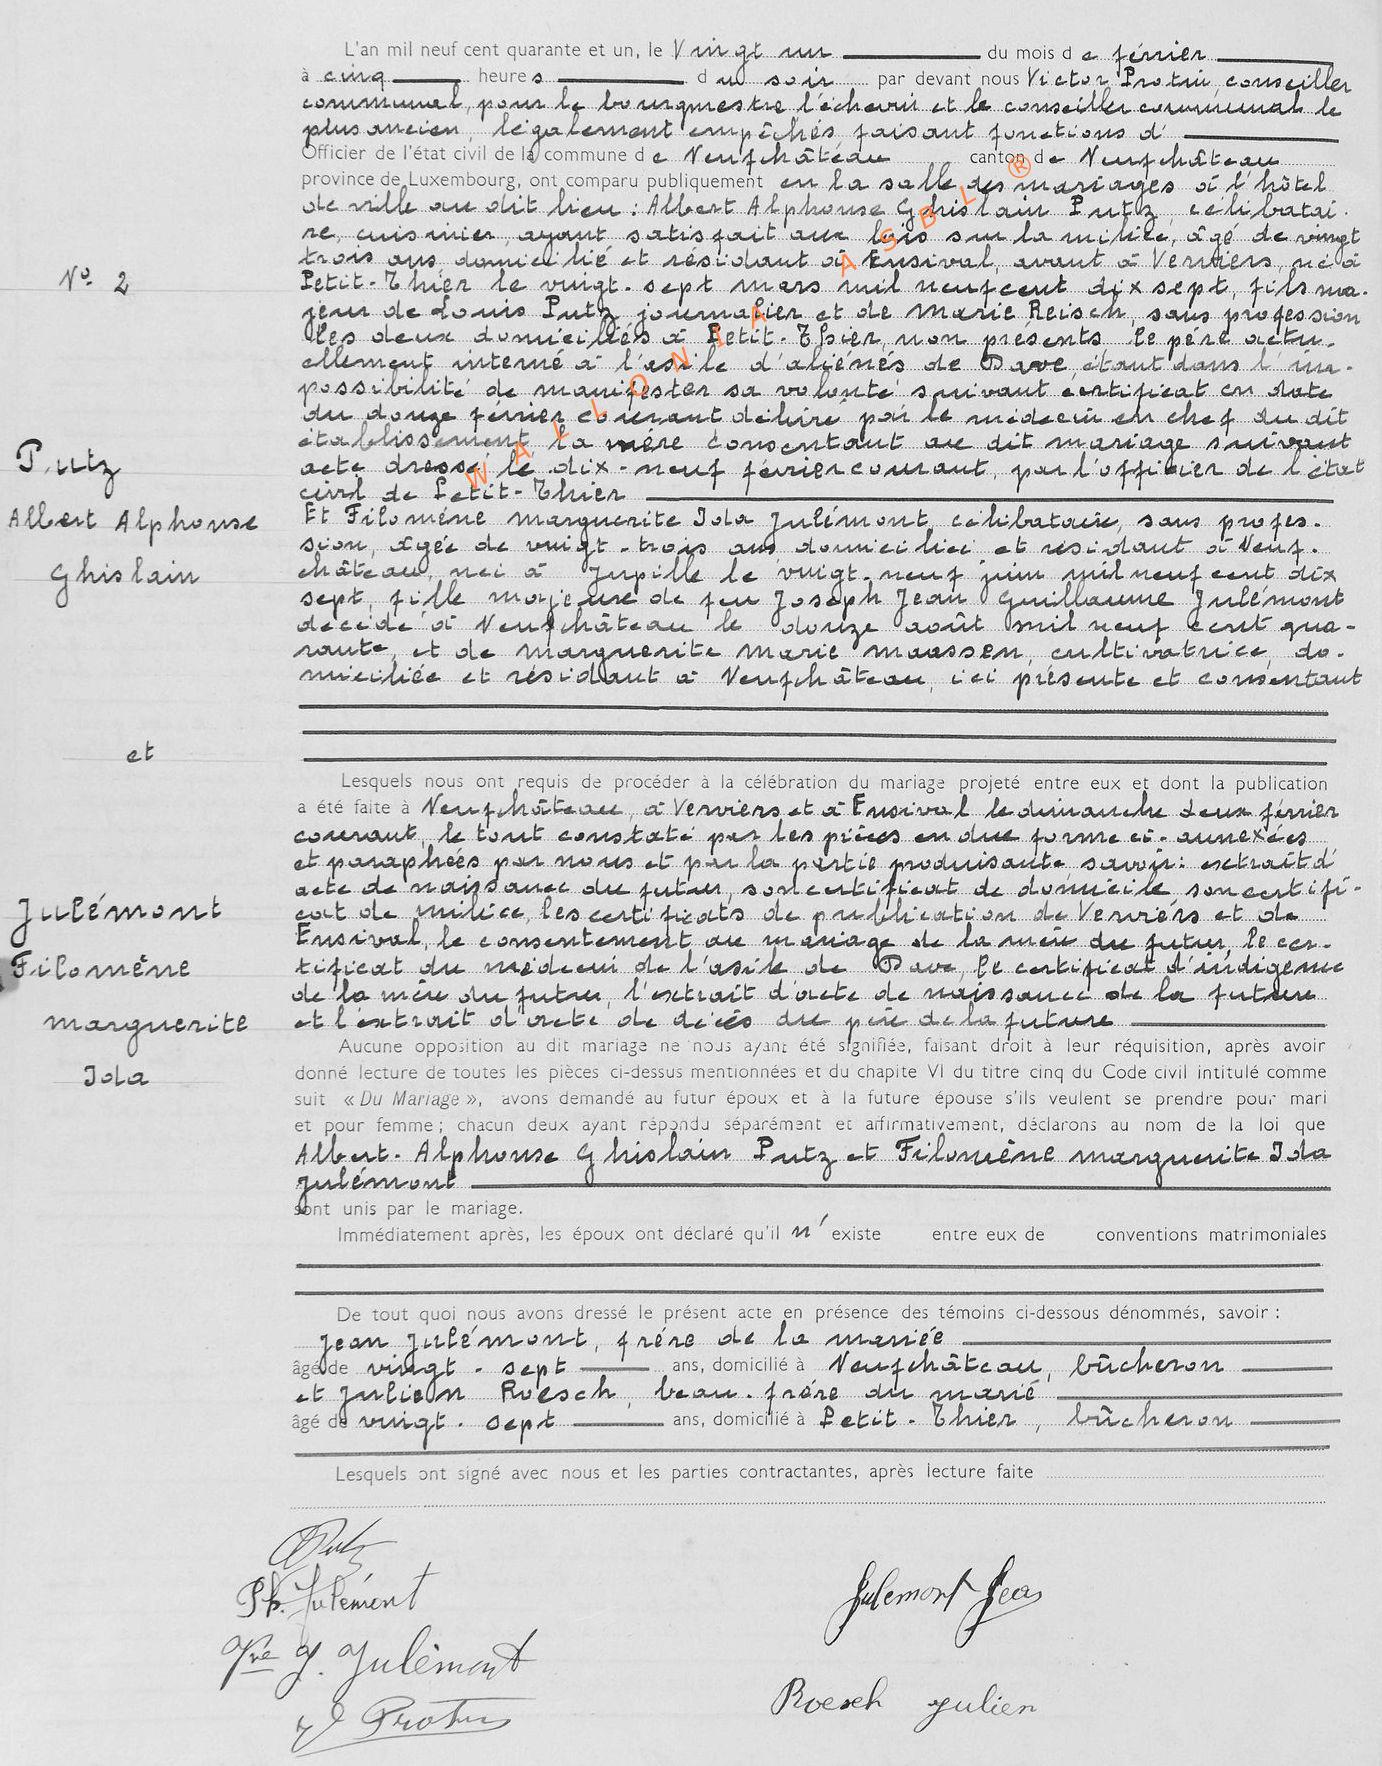 L'an mil neuf cent quarante et un, le Vingt un du mois de février
à cinq heures du soir par devant nous Victor Protin, conseiller
communal, pour le bourgmestre l'échevin et le conseiller communal le
plus ancien, légalement empêchés faisant fonctions d'
Officier de l'état civil de la commune de Neufchâteau canton de Neufchâteau
province de Luxembourg, ont comparu publiquement en la salle des mariages à l'hôtel
de ville au dit lieu : Albert Alphonse Ghislain Putz, célibatai-
re, cuisinier, ayant satisfait aux lois sur la milice, âgé de vingt
trois ans domicilié et résidant à Ensival, avant à Verviers, né à
N° 2
Petit-Thier le vingt-sept mars mil neuf cent dix sept, fils ma-
jeur de Louis Putz journalier et de Marie Reisch, sans profession
les deux domiciliés à Petit-Thier, non présents le père actu-
ellement interné à l'asile d'aliénés de Dave, étant dans l'im-
possibilité de manifester sa volonté suivant certificat en date
du douze février courant délivré par le médecin en chef du dit
établissement, la mère consentant au dit mariage suivant
acte dressé le dix-neuf février courant, par l'officier de l'état
civil de Petit-Thier
WALLONIA ASBL ®
Putz
Albert Alphonse
Ghislain
Et Filomène Marguerite Ida Julémont, célibataire, sans profes-
sion, âgée de vingt-trois ans domiciliée et résidant à Neuf-
château, née à Jupille le vingt-neuf juin mil neuf cent dix
sept, fille majeure de feu Joseph Jean Guillaume Julémont
décédé à Neufchâteau le douze août mil neuf cent qua-
rante, et de Marguerite Marie Maassen, cultivatrice, do-
miciliée et résidant à Neufchâteau, ici présente et consentant
et
Lesquels nous ont requis de procéder à la célébration du mariage projeté entre eux et dont la publication
a été faite à Neufchâteau, à Verviers et à Ensival le dimanche deux février
courant, le tout constaté par les pièces en due forme ci-annexées
et paraphées par nous et par la partie produisante, savoir : extrait d'
acte de naissance du futur, son certificat de domicile, son certifi-
cat de milice, les certificats de publication de Verviers et de
Ensival, le consentement au mariage de la mère du futur, le cer-
tificat du médecin de l'asile de Dave, le certificat d'indigence
de la mère du futur, l'extrait d'acte de naissance de la future
et l'extrait d'acte de décès du père de la future
Julémont
Filomène
Marguerite
Ida
Aucune opposition au dit mariage ne nous ayant été signifiée, faisant droit à leur réquisition, après avoir
donné lecture de toutes les pièces ci-dessus mentionnées et du chapitre VI du titre cinq du Code civil intitulé comme
suit « Du Mariage », avons demandé au futur époux et à la future épouse s'ils veulent se prendre pour mari
et pour femme ; chacun deux ayant répondu séparément et affirmativement, déclarons au nom de la loi que
Albert-Alphonse Ghislain Putz et Filomène Marguerite Ida
Julémont
sont unis par le mariage.
Immédiatement après, les époux ont déclaré qu'il n'existe entre eux de conventions matrimoniales
De tout quoi nous avons dressé le présent acte en présence des témoins ci-dessous dénommés, savoir :
Jean Julémont, frère de la mariée
âgé de vingt-sept ans, domicilié à Neufchâteau, bûcheron
et Julien Roesch, beau-frère du marié
âgé de vingt-sept ans, domicilié à Petit-Thier, bûcheron
Lesquels ont signé avec nous et les parties contractantes, après lecture faite
Putz
Ph. Julémont
Julemont Jean
Vve J. Julémont
Roesch Julien
V Protin